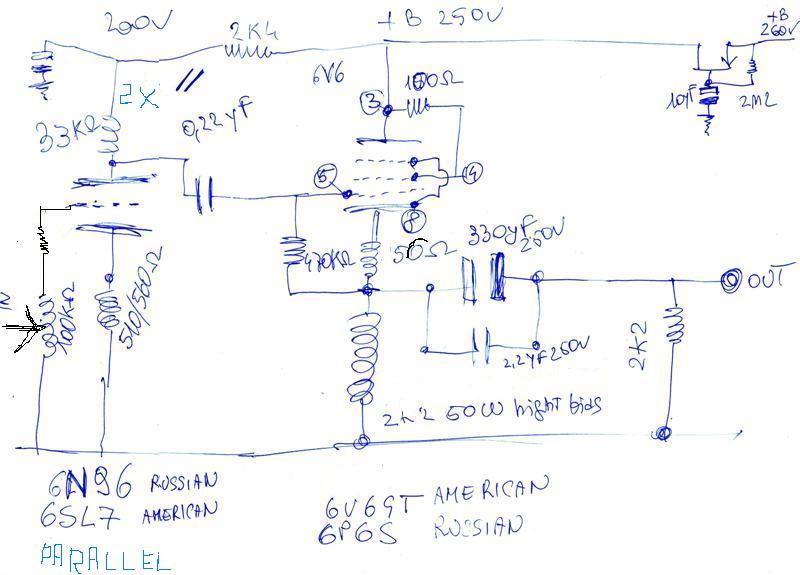 200V
2K4
+B 250V
+B
260V
6V6
100Ω
3
2X
//
10µF
2M2
33KΩ
0,22µF
5
4
8
IN
100KΩ
510/560Ω
470KΩ
50Ω
330µF
250V
OUT
2,2µF 250V
2K2
2K2 50W hight bias
6N96 RUSSIAN
6SL7 AMERICAN
PARALLEL
6V6GT AMERICAN
6P6S RUSSIAN